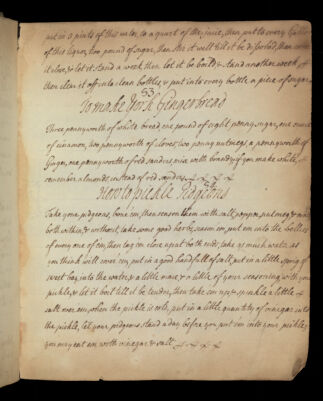 put in 3 pints of this water, to a quart of the juice, then put to every Gallon
of this liquor, two pound of sugar, then stir it well till it be dissolved, then cover
it close, & let it stand a week then let it be boild, & stand another week
then clear it off into clean bottles, & put into every bottle a piece of sugar
53
To make York Gingerbread
Three pennyworth of white bread, one pound of eight penny sugar, one ounce
of cinamon, two pennyworth of cloves, two penny nutmegs, a pennyworth of
Ginger, one pennyworth of red sandres mix with brandy if you make white,
remember almonds instead of red sandres
54
How to pickle Pidgeons
Take your pidgeons, bone em, then season them with salt, pepper, nutmeg & mace
both within, & without, take some good herbs, season em, put em into the bellies
of every one of em, then tay em close up at both ends, take as much water, as
you think will cover em, put in a good handfull of salt, put in a little sprig of
sweet bay, into the water, & a little mace, & a little of your seasoning with your
pickle, & let it boil till it be tender, then take em up, & sprinkle a little
salt over em, when the pickle is cold, put in a little quantity of vinegar into
the pickle, let your pidgeons stand a day before you put em into your pickle,
you may eat em with vinegar & salt